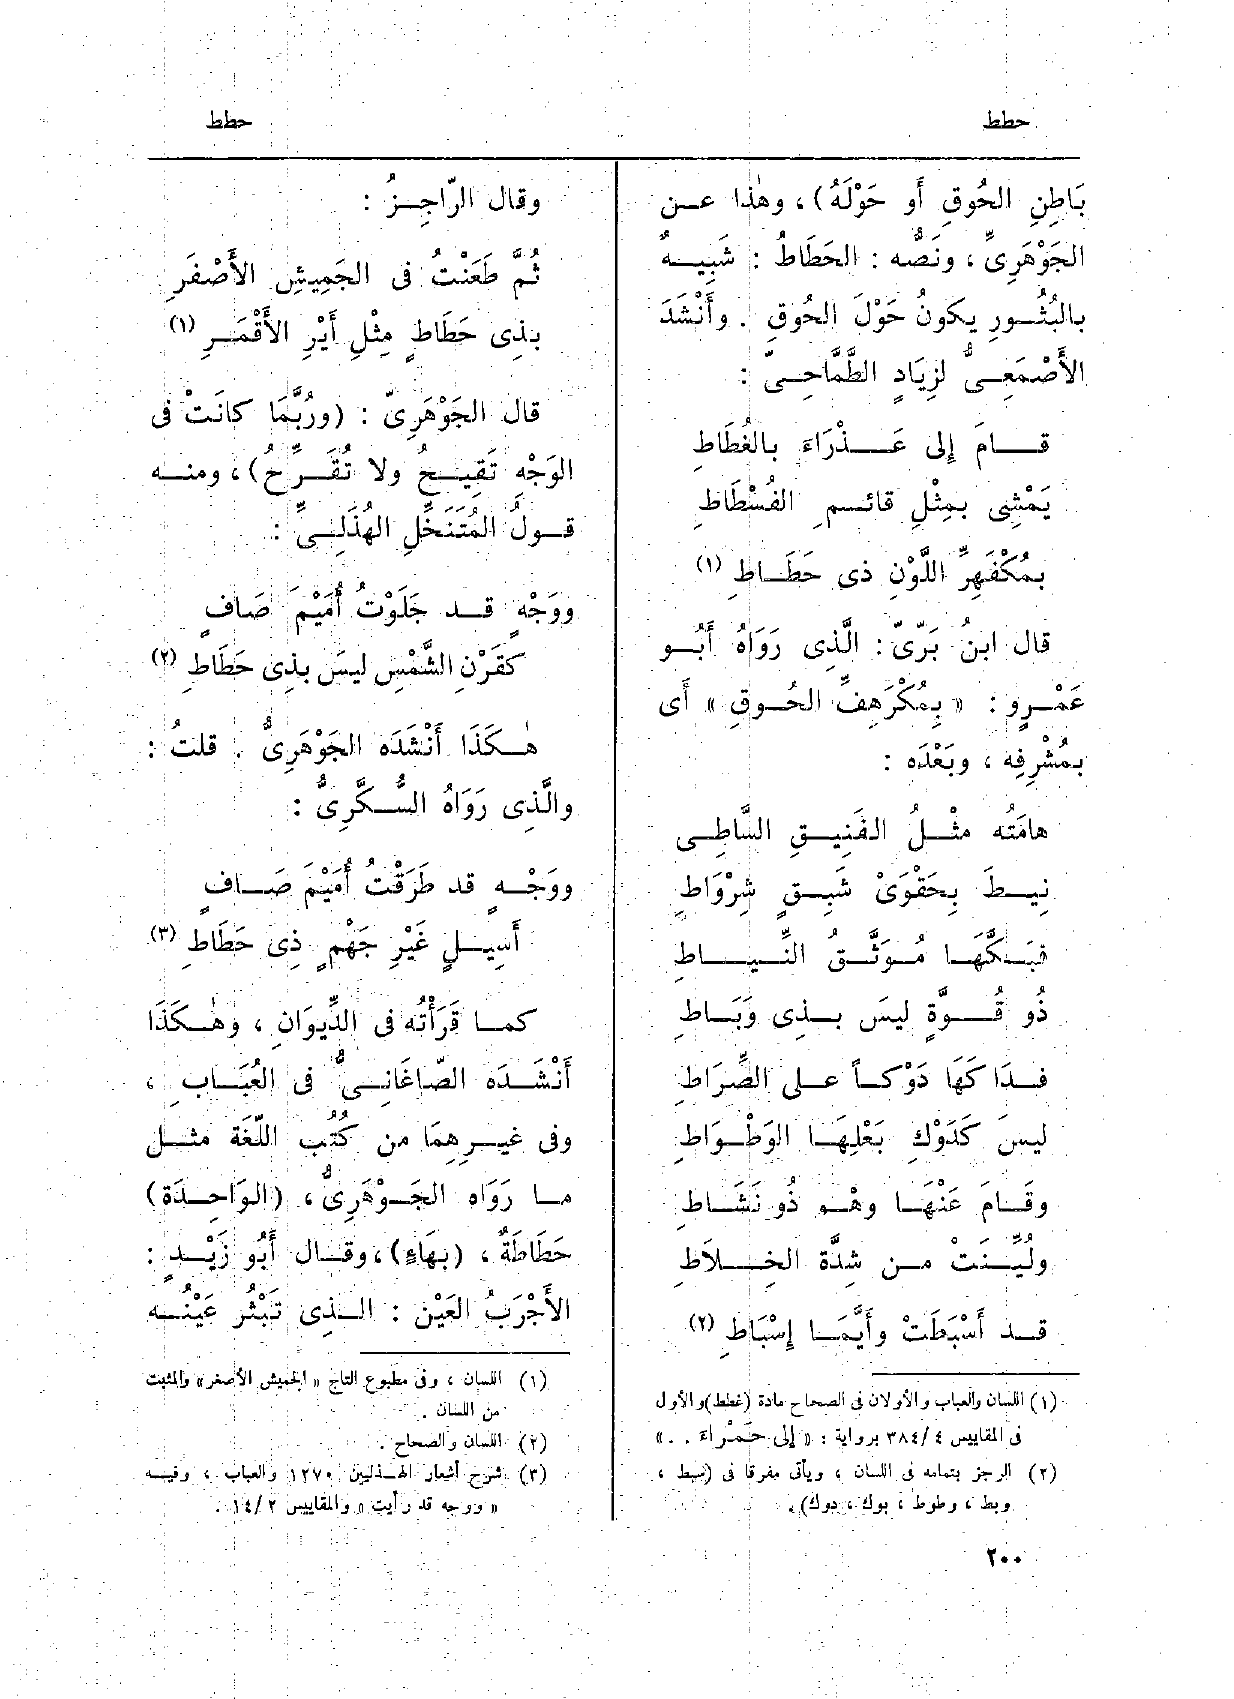 حطط
حطط
بَاطِنِ الحُوقِ أو حَوْلَهُ) ، وهٰذا عـن
الجَوْهَرِىِّ ، ونَصُّه : الحَطَاطُ : شَبِيهٌ
بالبُثُورِ يكونُ حَوْلَ الحُوقِ . وأَنْشَدَ
الأَصْمَعِىُّ لزِيَادٍ الطَّمَّاحِىِّ :
قَامَ إلى عَذْرَاءَ بالغُطَاطِ
يَمْشِى بمِثْلِ قائمِ الفُسْطَاطِ
بمُكْفَهِرِّ اللَّوْنِ ذى حَطَاطِ (١)
قال ابنُ بَرِّىّ : الَّذى رَوَاهُ أَبُو
عَمْرٍو : « بِمُكْرَهِفِّ الحُوقِ » أى
بمُشْرِفِه ، وبَعْدَه :
هامَتُه مثْلُ الفَنِيقِ السَّاطِى
نِيطَ بِحَقْوَىْ شَبِقٍ شِرْوَاطِ
فبَكَّهَا مُوَثَّقُ النِّيَاطِ
ذُو قُوَّةٍ ليسَ بذى وَبَاطِ
فدَاكَهَا دَوْكاً على الصِّرَاطِ
ليسَ كَدَوْكِ بَعْلِهَا الوَطْوَاطِ
وقَامَ عَنْهَا وهْو ذُو نَشَاطِ
ولُيِّنَتْ من شِدَّة الخِلاَطِ
قد أَسْبَطَتْ وأَيَّمَا إِسْبَاطِ (٢)
(١) اللسان والعباب والأولان فى الصحاح مادة (غطط) والأول
فى المقاييس ٤/ ٣٨٤ برواية : « إلى حَمْراء . . »
(٢) الرجز بتمامه فى اللسان ، ويأتى مفرقا فى (سبط ،
وبط ، وطوط ، بوك ، دوك) .
وقال الرّاجِزُ :
ثُمَّ طَعَنْتُ فى الجَمِيشِ الأَصْفَرِ
بذِى حَطَاطٍ مِثْلِ أَيْرِ الأَقْمَرِ (١)
قال الجَوْهَرِىّ : (ورُبَّمَا كانَتْ فى
الوَجْهِ تَقِيحُ ولا تُقَرِّحُ) ، ومنه
قولُ المُتَنَخِّلِ الهُذَلِىِّ :
ووَجْهٍ قد جَلَوْتُ أُمَيْمَ صَافٍ
كقَرْنِ الشَّمْسِ ليسَ بذِى حَطَاطِ (٢)
هٰكَذَا أَنْشَدَه الجَوْهَرِىُّ . قلتُ :
والَّذِى رَوَاهُ السُّكَّرِىُّ :
ووَجْهٍ قد طَرَقْتُ أُمَيْمَ صَافٍ
أَسِيلٍ غَيْرِ جَهْمٍ ذِى حَطَاطِ (٣)
كما قَرَأْتُه فى الدِّيوَانِ ، وهٰكَذَا
أَنْشَدَه الصّاغَانِىُّ فى العُبَابِ ،
وفى غيرِهِمَا من كُتُبِ اللُّغَة مثل
ما رَوَاه الجَوْهَرِىُّ ، (الوَاحِدَةُ)
حَطَاطَةٌ ، (بِهَاءٍ) ، وقال أَبُو زَيْدٍ :
الأَجْرَبُ العَيْنِ : الذى تَبْثُر عَيْنُه
(١) اللسان ، وفى مطبوع التاج « الخميش الأصغر » والمثبت
من اللسان .
(٢) اللسان والصحاح .
(٣) شرح أشعار الهذليين ١٢٧٠ والعباب ، وفيه
« ووجه قد رأيت » والمقاييس ٢/ ١٤ .
٢٠٠